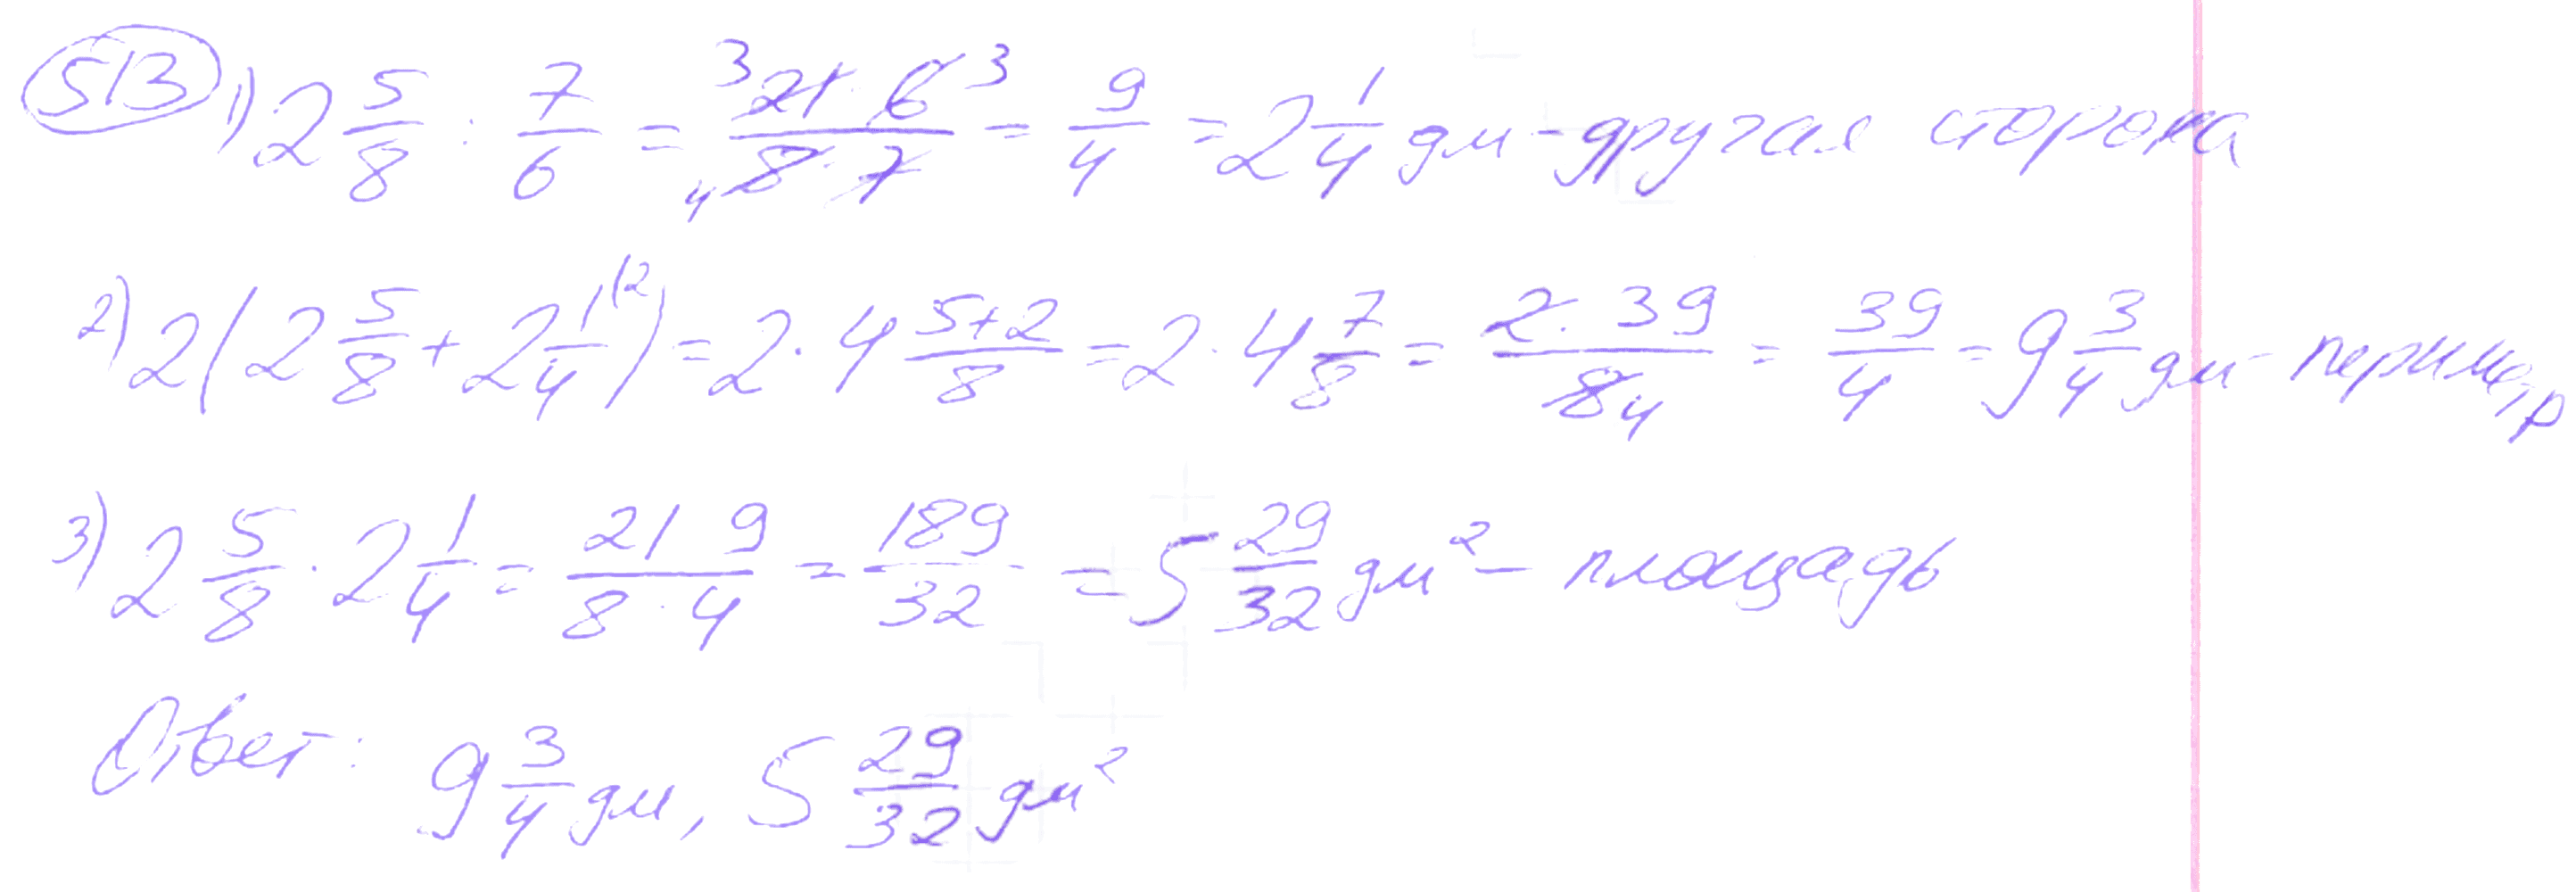 513 1) 2 5/8 : 7/6 = 21·6/8·7 (3, 3, 4) = 9/4 = 2 1/4 дм - другая сторона
2) 2(2 5/8 + 2 1/4 (2) = 2·4 5+2/8 = 2·4 7/8 = 2·39/8 4 = 39/4 = 9 3/4 дм - периметр
3) 2 5/8 · 2 1/4 = 21 9/8·4 = 189/32 = 5 29/32 дм² - площадь
Ответ: 9 3/4 дм, 5 29/32 дм²